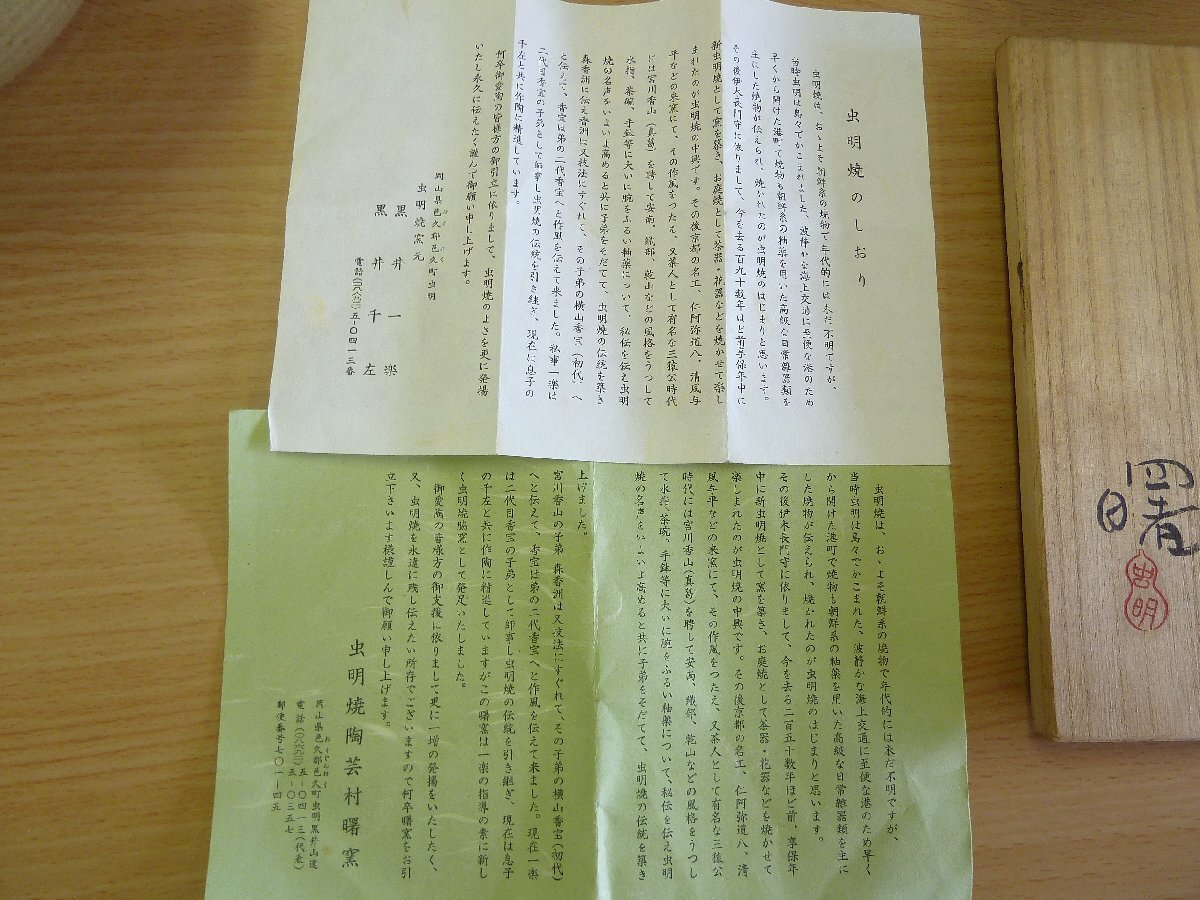 虫明焼のしおり
虫明焼は、およそ朝鮮系の焼物で年代的には未だ不明ですが、
当時虫明は島々でかこまれました、波静かな海上交通に至便な港のため
早くから開けた港町で焼物も朝鮮系の釉薬を用いた高級な日常雑器類を
主にした焼物が伝えられ、焼かれたのが虫明焼のはじまりと思います。
その後伊木長門守に依りまして、今を去る二百九十数年ほど前享保年中に
新虫明焼として窯を築き、お庭焼として茶器・花器などを焼かせて楽し
まれたのが虫明焼の中興です。その後京都の名工、仁阿弥道八、清風与
平などの来窯にて、その作風をつたえ、又茶人として有名な三猿公時代
には宮川香山（真葛）を聘して安南、織部、乾山などの風格をうつして
水指、茶碗、手鉢等に大いに腕をふるい釉薬について、秘伝を伝え虫明
焼の名声をいよいよ高めると共に子弟をそだてて、虫明焼の伝統を築き
森香洲に伝え香洲は又技法にすぐれて、その子弟の横山香宝（初代）へ
と伝えて、香宝は弟の二代香宝へと作風を伝えて来ました。私事一楽は
二代目香宝の子弟として師事し虫明焼の伝統を引き継ぎ、現在に息子の
千左と共に作陶に精進しています。
何卒御愛陶の皆様方の御引立に依りまして、虫明焼のよさを更に発揚
いたし永久に伝えたく謹んで御願い申し上げます。
岡山県邑久郡邑久町虫明
おく おく
虫明焼窯元
黒井一楽
黒井千左
電話（〇八六九二）五-〇四一三番
虫明焼は、およそ朝鮮系の焼物で年代的には未だ不明ですが、
当時虫明は島々でかこまれた、波静かな海上交通に至便な港のため早く
から開けた港町で焼物も朝鮮系の釉薬を用いた高級な日常雑器類を主に
した焼物が伝えられ、焼かれたのが虫明焼のはじまりと思います。
その後伊木長門守に依りまして、今を去る二百五十数年ほど前、享保年
中に新虫明焼として窯を築き、お庭焼として茶器・花器などを焼かせて
楽しまれたのが虫明焼の中興です。その後京都の名工、仁阿弥道八、清
風与平などの来窯にて、その作風をつたえ、又茶人として有名な三猿公
時代には宮川香山（真葛）を聘して安南、織部、乾山などの風格をうつし
て水指、茶碗、手鉢等に大いに腕をふるい釉薬について、秘伝を伝え虫明
焼の名声をいよいよ高めると共に子弟をそだてて、虫明焼の伝統を築き
上げました。
宮川香山の子弟 森香洲は又技法にすぐれて、その子弟の横山香宝（初代）
へと伝えて、香宝は弟の二代香宝へと作風を伝えて来ました。現在一楽
は二代目香宝の子弟として師事し虫明焼の伝統を引き継ぎ、現在は息子
の千左と共に作陶に精進していますがこの曙窯は一楽の指導の素に新し
く虫明焼脇窯として発足いたしました。
御愛陶の皆様方の御支援に依りまして更に一増の発揚をいたしたく、
又、虫明焼を永遠に残し伝えたい所存でございますので何卒曙窯をお引
立下さいます様謹しんで御願い申し上げます。
虫明焼陶芸村曙窯
岡山県邑久郡邑久町虫明黒井山道
電話（〇八六九二）五-〇四一三（代表）
五-〇三五七
郵便番号七〇一-四五
曙
虫明